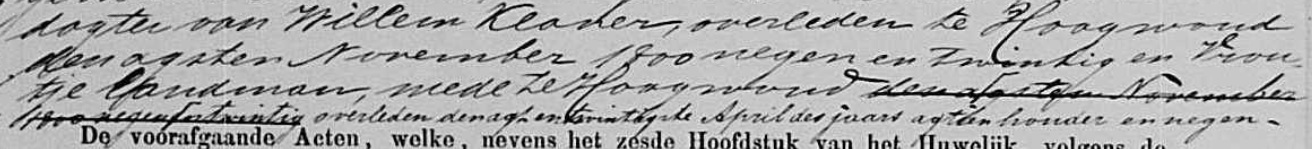 dogter van Willem Klaver, overleden te Hoogwoud
den agsten November 1800 negen en twintig en Vrou-
tje Landman, mede te Hoogwoud den agsten November
1800 negen en twintig overleden den agt en twintigste April des jaars agttien honder en negen-
De voorafgaande Acten, welke, nevens het zesde Hoofdstuk van het Huwelijk, volgens de